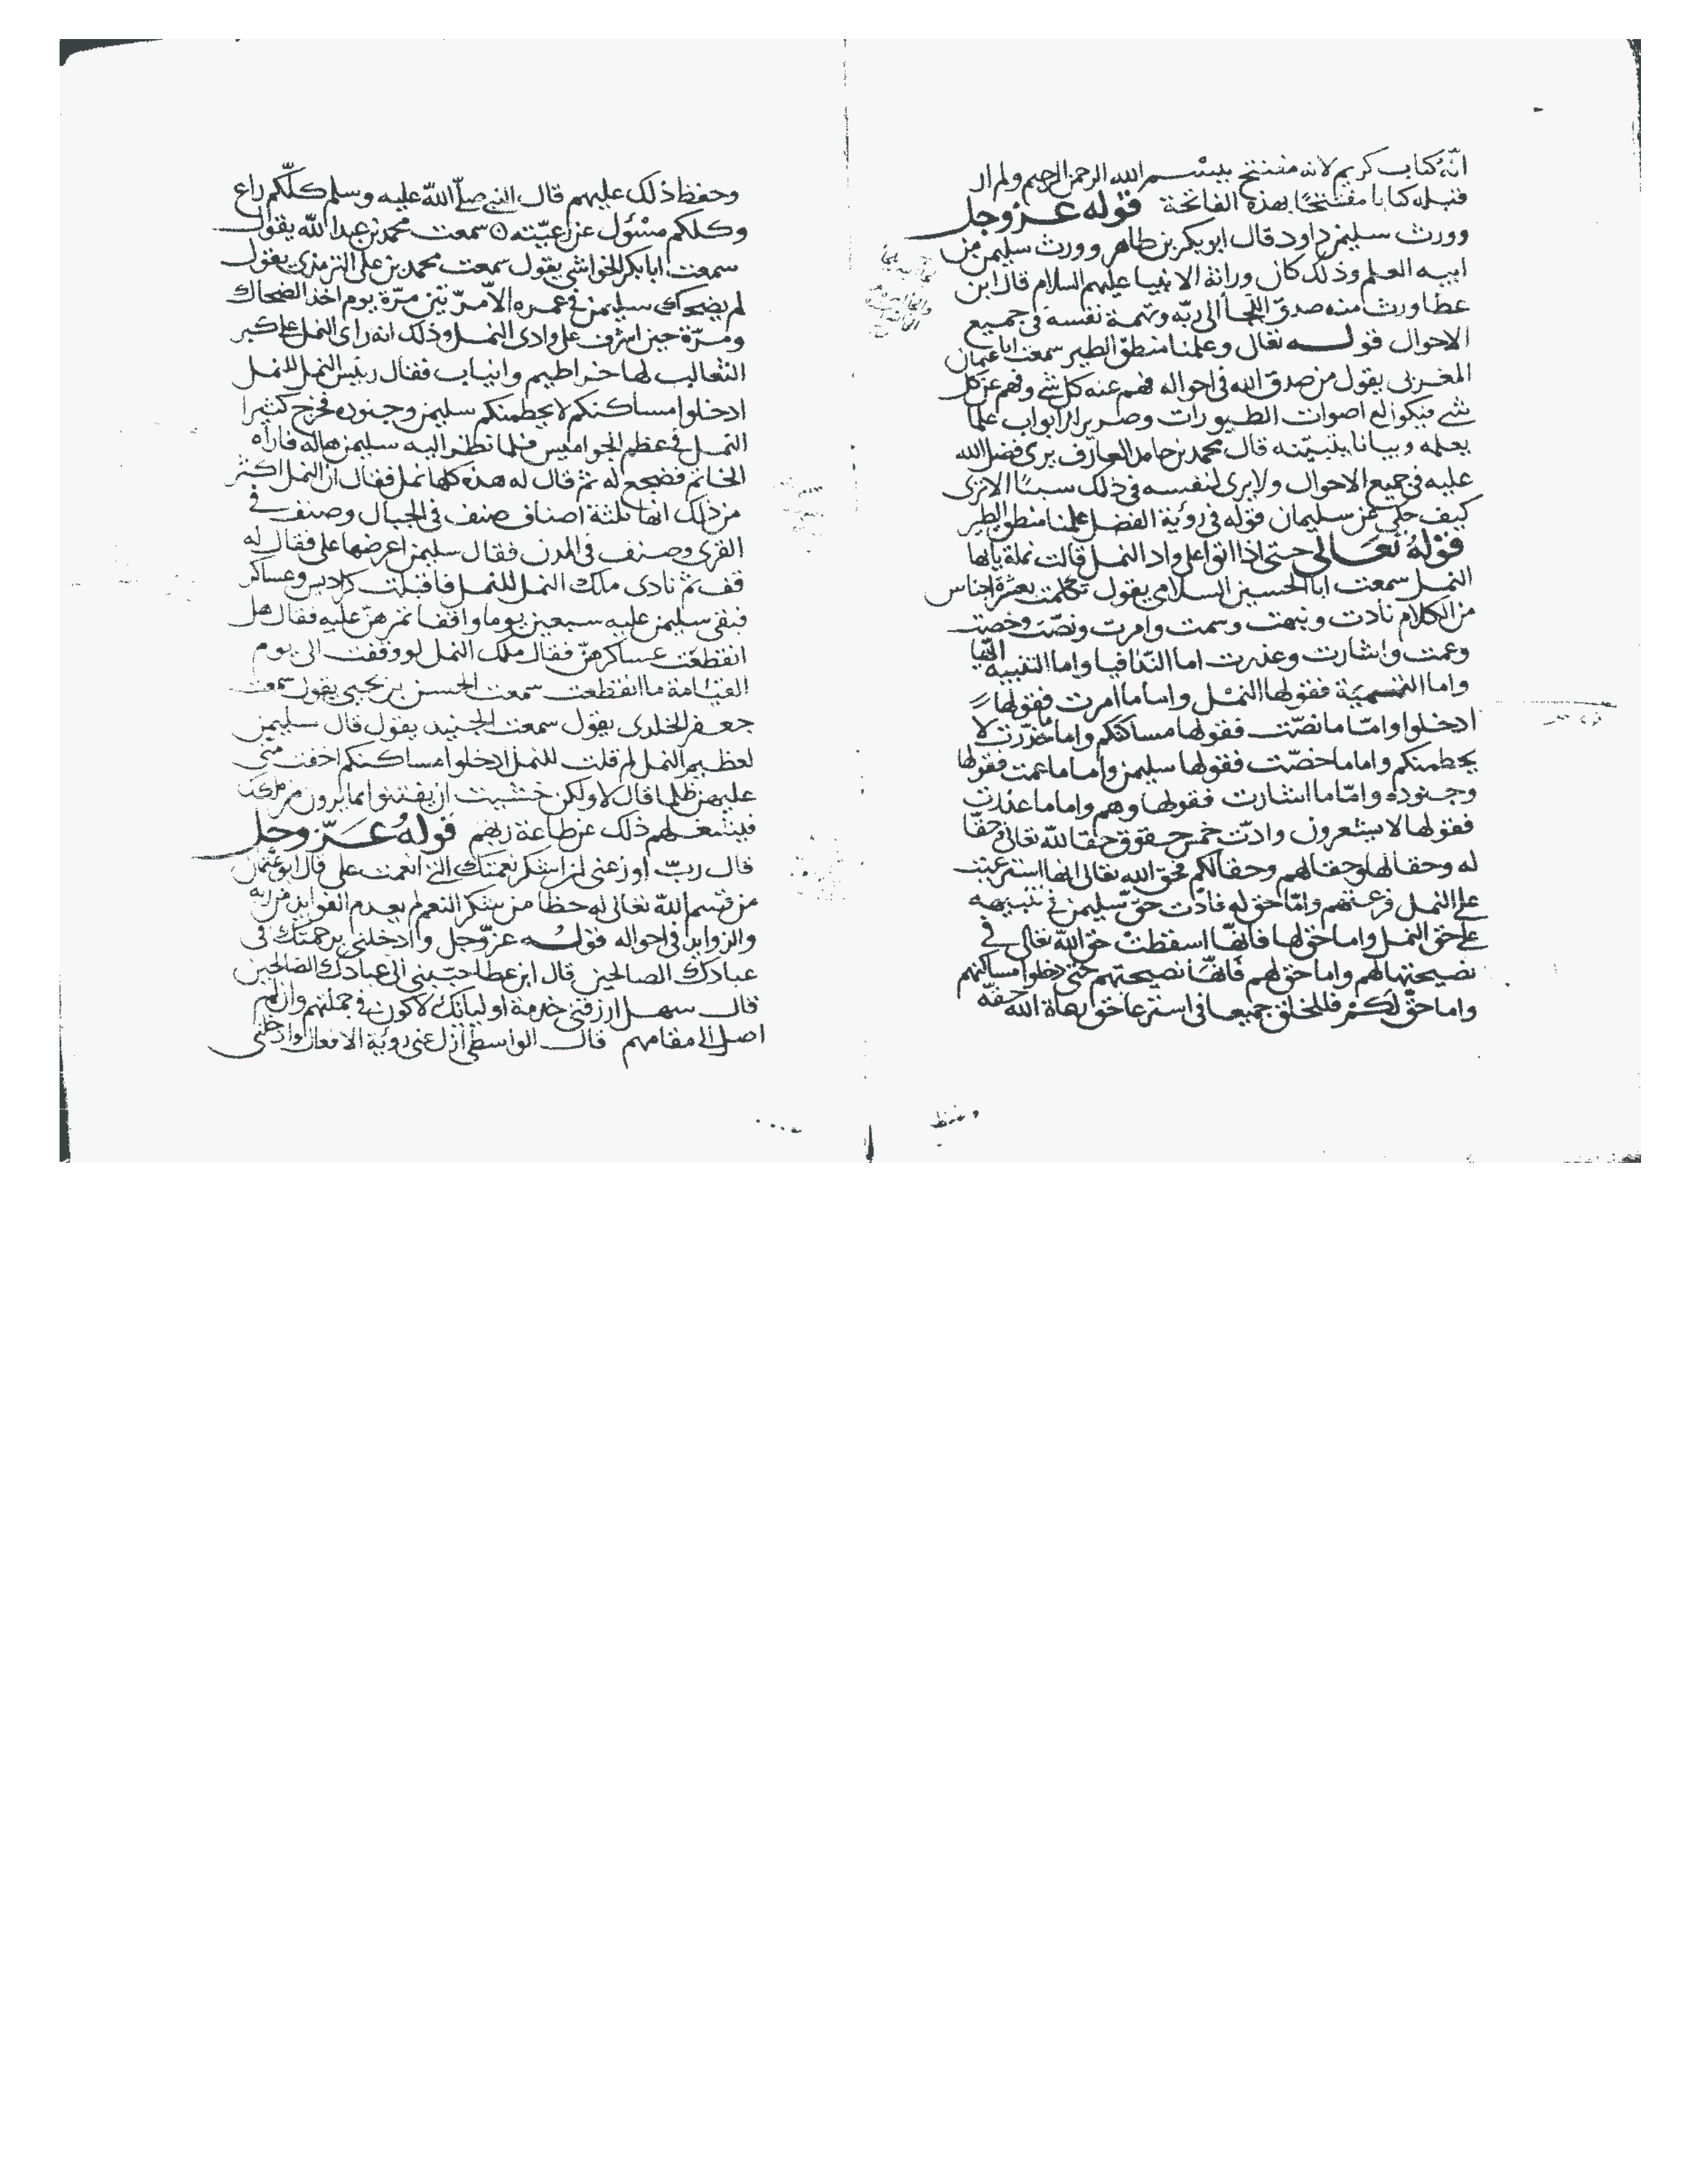 انّه كتاب كريم لانه مفتتح ببسم الله الرحمن الرحيم ولم ار
قبله كتابا مفتتحا بهذه الفاتحة قوله عزّ وجل
وورث سليمن داود قال ابو بكر بن طاهر وورث سليمن من
ابيه العلم وذلك كان وراثة الانبيا عليهم السلام قال ابن
عطا ورث منه صدق اللجا الى ربّه وتهمة نفسه في جميع
الاحوال قوله تعالى وعلمنا منطق الطير سمعت ابا عثمان
المغربى يقول من صدق الله فى احواله فهم عنه كل شي وفهم عن كل
شي فيكون له اصوات الطيورات وصرير الابواب علما
يعلمه وبيانا يتبيّنه قال محمد بن حامد العارف يرى فضل الله
عليه في جميع الاحوال ولا يرى لنفسه في ذلك سببًا الا ترى
كيف حكى عن سليمان قوله في رؤية الفضل علمنا منطق الطير
قوله تعالى حتى اذا اتوا على واد النمل قالت نملة يايها
النمل سمعت ابا الحسين السلامى يقول تكلمت بعشرة اجناس
من الكلام نادت ونبهت وسمت وامرت ونصّت وخصت
وعمت واشارت وعذرت اما النّدا فيا واما التنبيه
واما التسمية فقولها النمل واما ما امرت فقولها
ادخلوا وامّا ما نصّت فقولها مساكنكم واما ما حذّرت لا
يحطمنكم واما ما خصّت فقولها سليمن واما ما عمت فقولها
وجنوده وامّا ما اشارت فقولها وهم واما ما عذرت
فقولها لا يشعرون وادّت خمس حقوق حقا لله تعالى وحقّا
له وحقا لها وحقا لهم وحقا لكم فحق الله تعالى انها استرعيت
على النمل فرعتهم وامّا حق له فادّت حق سليمن في تنبيهه
على حق النمل واما حق لها فانّها اسقطت حق الله تعالى في
نصيحتها لهم واما حق لهم فانّها نصيحتهم حتى دخلوا مساكنهم
واما حقّ لكم فللخلق جميعا فى استرعا حق رعاة الله حقّه
وحفظ
وحفظ ذلك عليهم قال النبي صلّى الله عليه وسلم كلّكم راع
وكلكم مسْئول عن رعيّته ۞ سمعت محمد بن عبدا لله يقول
سمعت ابا بكر الخواشي يقول سمعت محمد بن على الترمذي يقول
لم يضحك سليمن فى عمره الا مرّتين مرّة يوم اخذ الضحاك
ومرّة حين اشرف على وادى النمل وذلك انه راى النمل على كبر
الثعالب لها خراطيم وانياب فقال رئيس النمل للنمل
ادخلوا مساكنكم لا يحطمنكم سليمن وجنوده فخرج كثيرا
النمل في عظم الجواميس فلما نظر اليه سليمن هاله فاراه
الخاتم فضجع له ثم قال له هذه كلها نمل فقال ان النمل اكثر
من ذلك انها ثلثة اصناف صنف في الجبال وصنف في
القرى وصنف في المدن فقال سليمن اعرضها على فقال له
قف ثم نادى ملك النمل للنمل فاقبلت كراديس وعساكر
فبقى سليمن عليه سبعين يوما واقفا تمر هنّ عليه فقال هل
انقطعت عساكرهنّ فقال ملك النمل لو وقفت الى يوم
القيامة ما انقطعت سمعت الحسن بن يحيى يقول سمعت
جعفر الخلدى يقول سمعت الجنيد يقول قال سليمن
لعظيم النمل لم قلت للنمل ادخلوا مساكنكم اخفت منّى
عليهن ظلما قال لا ولكن خشيت ان يفتنوا بما يرون من ملكك
فيشغلهم ذلك عن طاعة ربهم قوله عزّ وجل
قال ربّ اوزعنى ان اشكر نعمتك التى انعمت على قال ابو عثمان
من قسم الله تعالى له حظا من شكر النعم لم يعدم الفوايد من ربّه
والزوايد فى احواله قوله عزّ وجل وادخلنى برحمتك فى
عبادك الصالحين قال ابن عطا حبّبنى الى عبادك الصالحين
قال سهل ارزقنى خدمة اوليائك لاكون في جملتهم وان لم
اصل الى مقامهم قال الواسطى ازل عنى رؤية الافعال وادخلنى